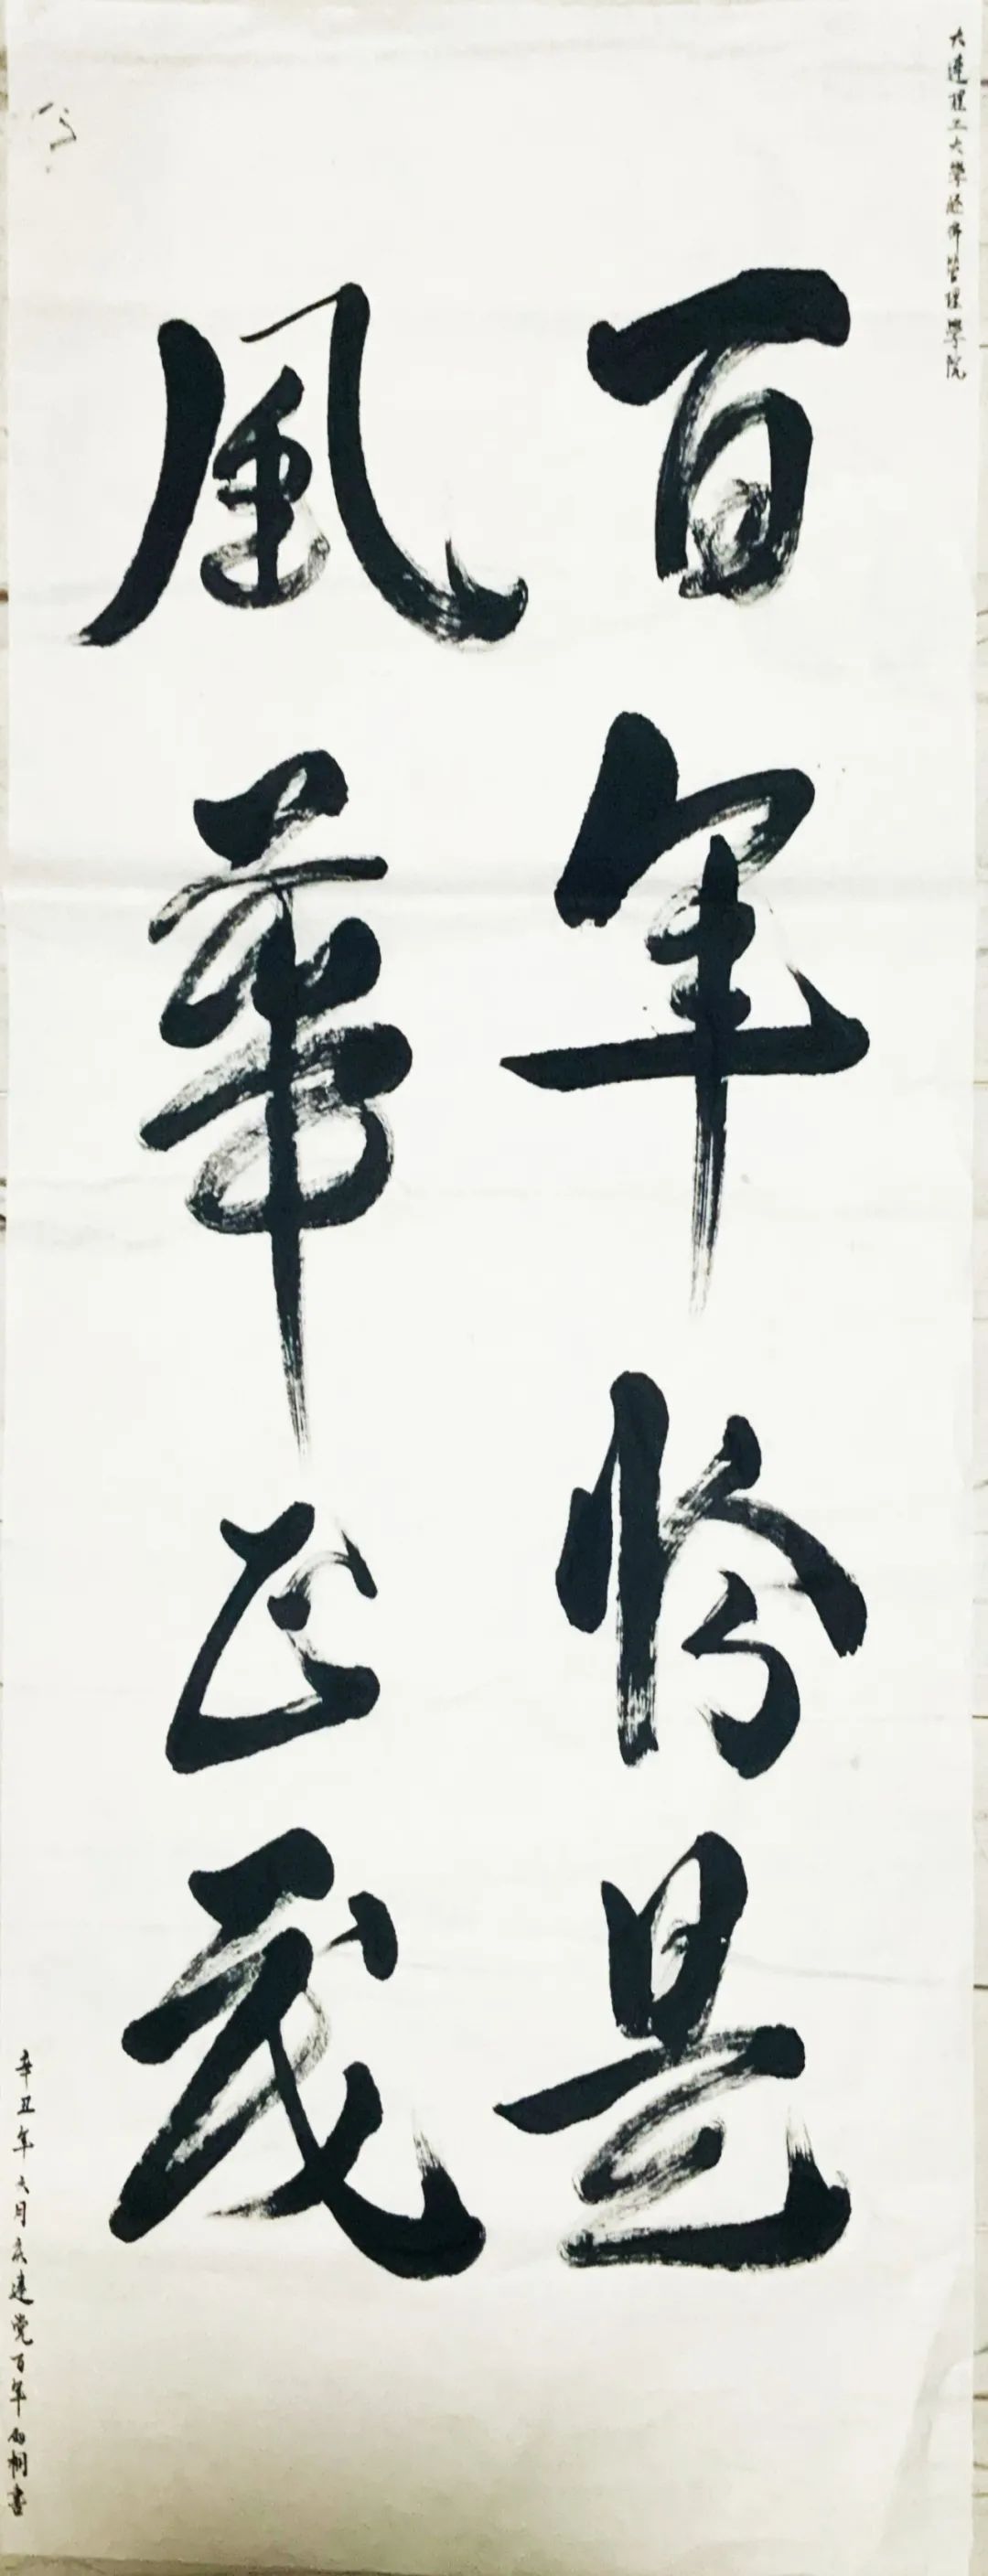 大連理工大學經濟管理學院
百年恰是
風華正茂
辛丑年六月慶建党百年
書